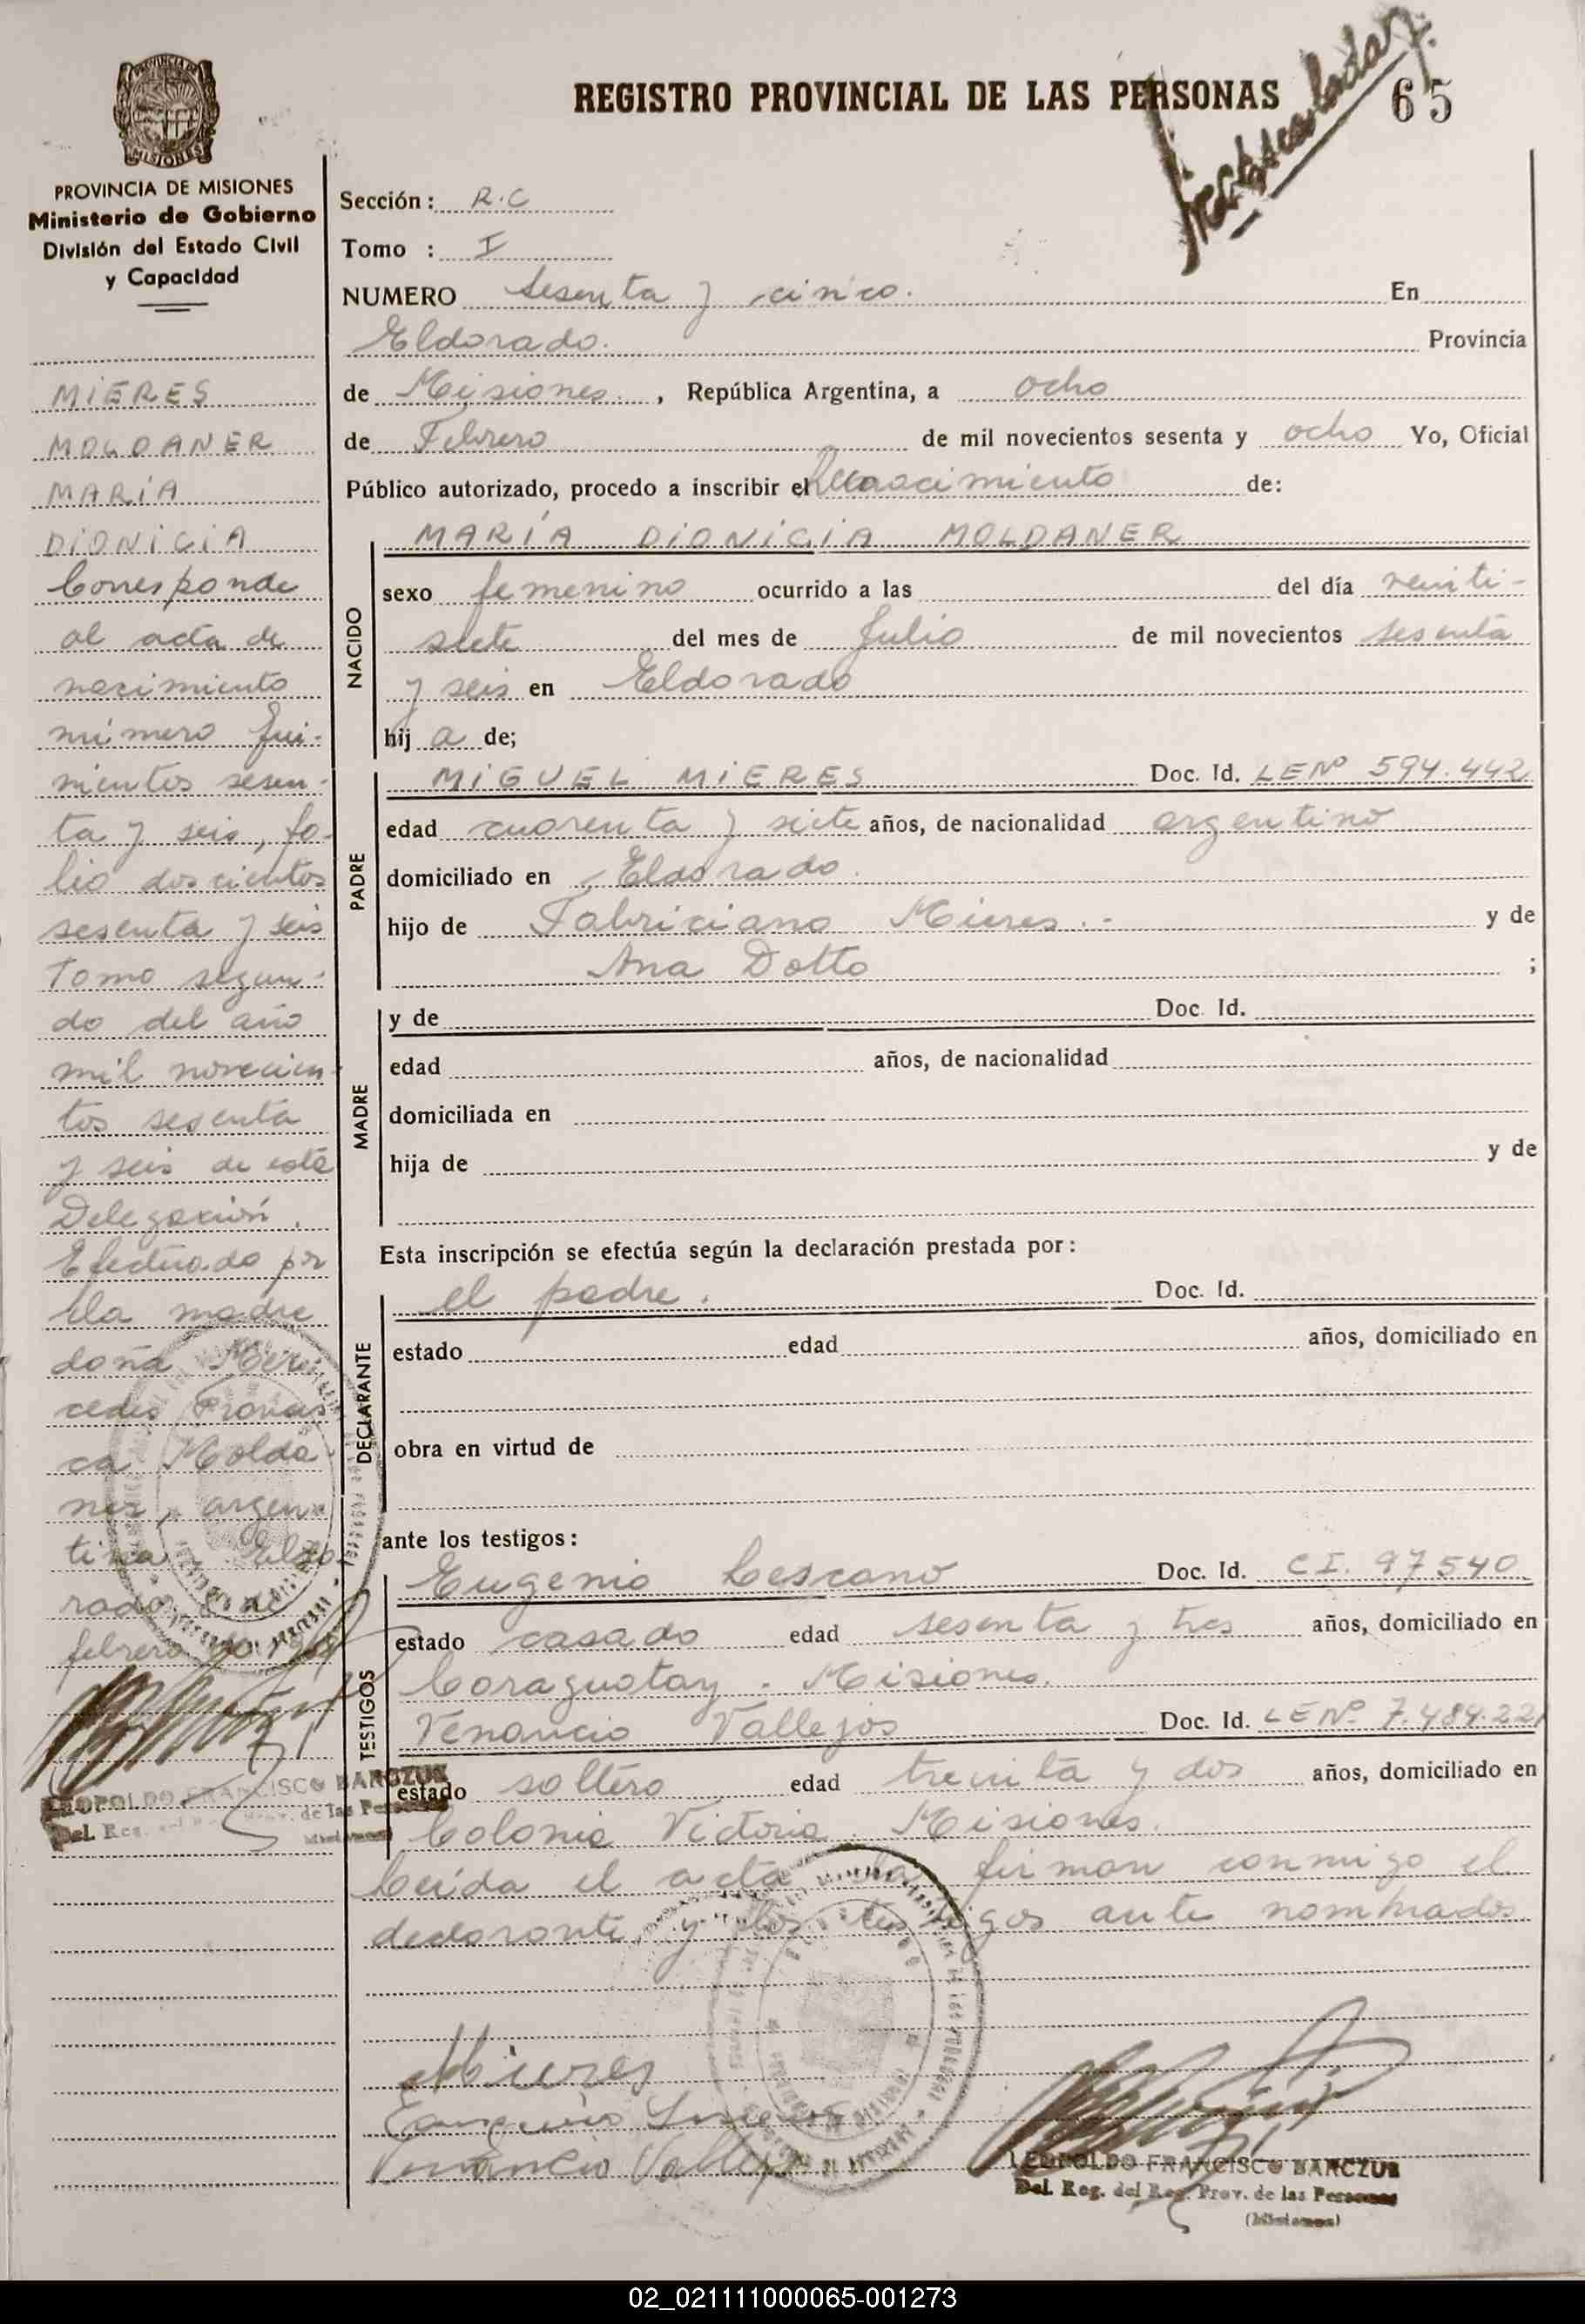 REGISTRO PROVINCIAL DE LAS PERSONAS
65
PROVINCIA DE MISIONES
Ministerio de Gobierno
División del Estado Civil
y Capacidad
MIERES
MOLDANER
MARÍA
DIONICIA
Corresponde
al acta de
nacimiento
número qui-
nientos sesen-
ta y seis, fo-
lio doscientos
sesenta y seis
Tomo segun-
do del año
mil novecien-
tos sesenta
y seis de esta
Delegación.
Efectuado por
la madre
doña Mer-
cedes
ca Molda
ner, argen-
tina. Eldo-
rado, 8 de
febrero de
LEOPOLDO FRANCISCO BARCZUK
Del. Reg. del Reg. Prov. de las Personas
(Misiones)
Sección: R.C
Tomo : I
NUMERO Sesenta y cinco. En
Eldorado. Provincia
de Misiones, República Argentina, a ocho
de Febrero de mil novecientos sesenta y ocho Yo, Oficial
Público autorizado, procedo a inscribir el Reconocimiento de:
NACIDO
MARÍA DIONICIA MOLDANER
sexo femenino ocurrido a las del día veinti-
siete del mes de Julio de mil novecientos sesenta
y seis en Eldorado
hij a de;
PADRE
MIGUEL MIERES Doc. Id. LE Nº 594.442
edad cuarenta y siete años, de nacionalidad argentino
domiciliado en Eldorado.
hijo de Fabriciano Mieres.- y de
Ana Dotto ;
MADRE
y de Doc. Id.
edad años, de nacionalidad
domiciliada en
hija de y de
Esta inscripción se efectúa según la declaración prestada por:
DECLARANTE
el padre. Doc. Id.
estado edad años, domiciliado en
obra en virtud de
ante los testigos:
TESTIGOS
Eugenio Lescano Doc. Id. C.I. 97540
estado casado edad sesenta y tres años, domiciliado en
Caraguatay. Misiones.
Venancio Vallejos Doc. Id. LE Nº 7.484.221
estado soltero edad treinta y dos años, domiciliado en
Colonia Victoria. Misiones.
Leída el acta la firman conmigo el
declarante y los testigos ante nombrados
Mieres
Venancio Vallejo
LEOPOLDO FRANCISCO BARCZUK
Del. Reg. del Reg. Prov. de las Personas
(Misiones)
02_021111000065-001273